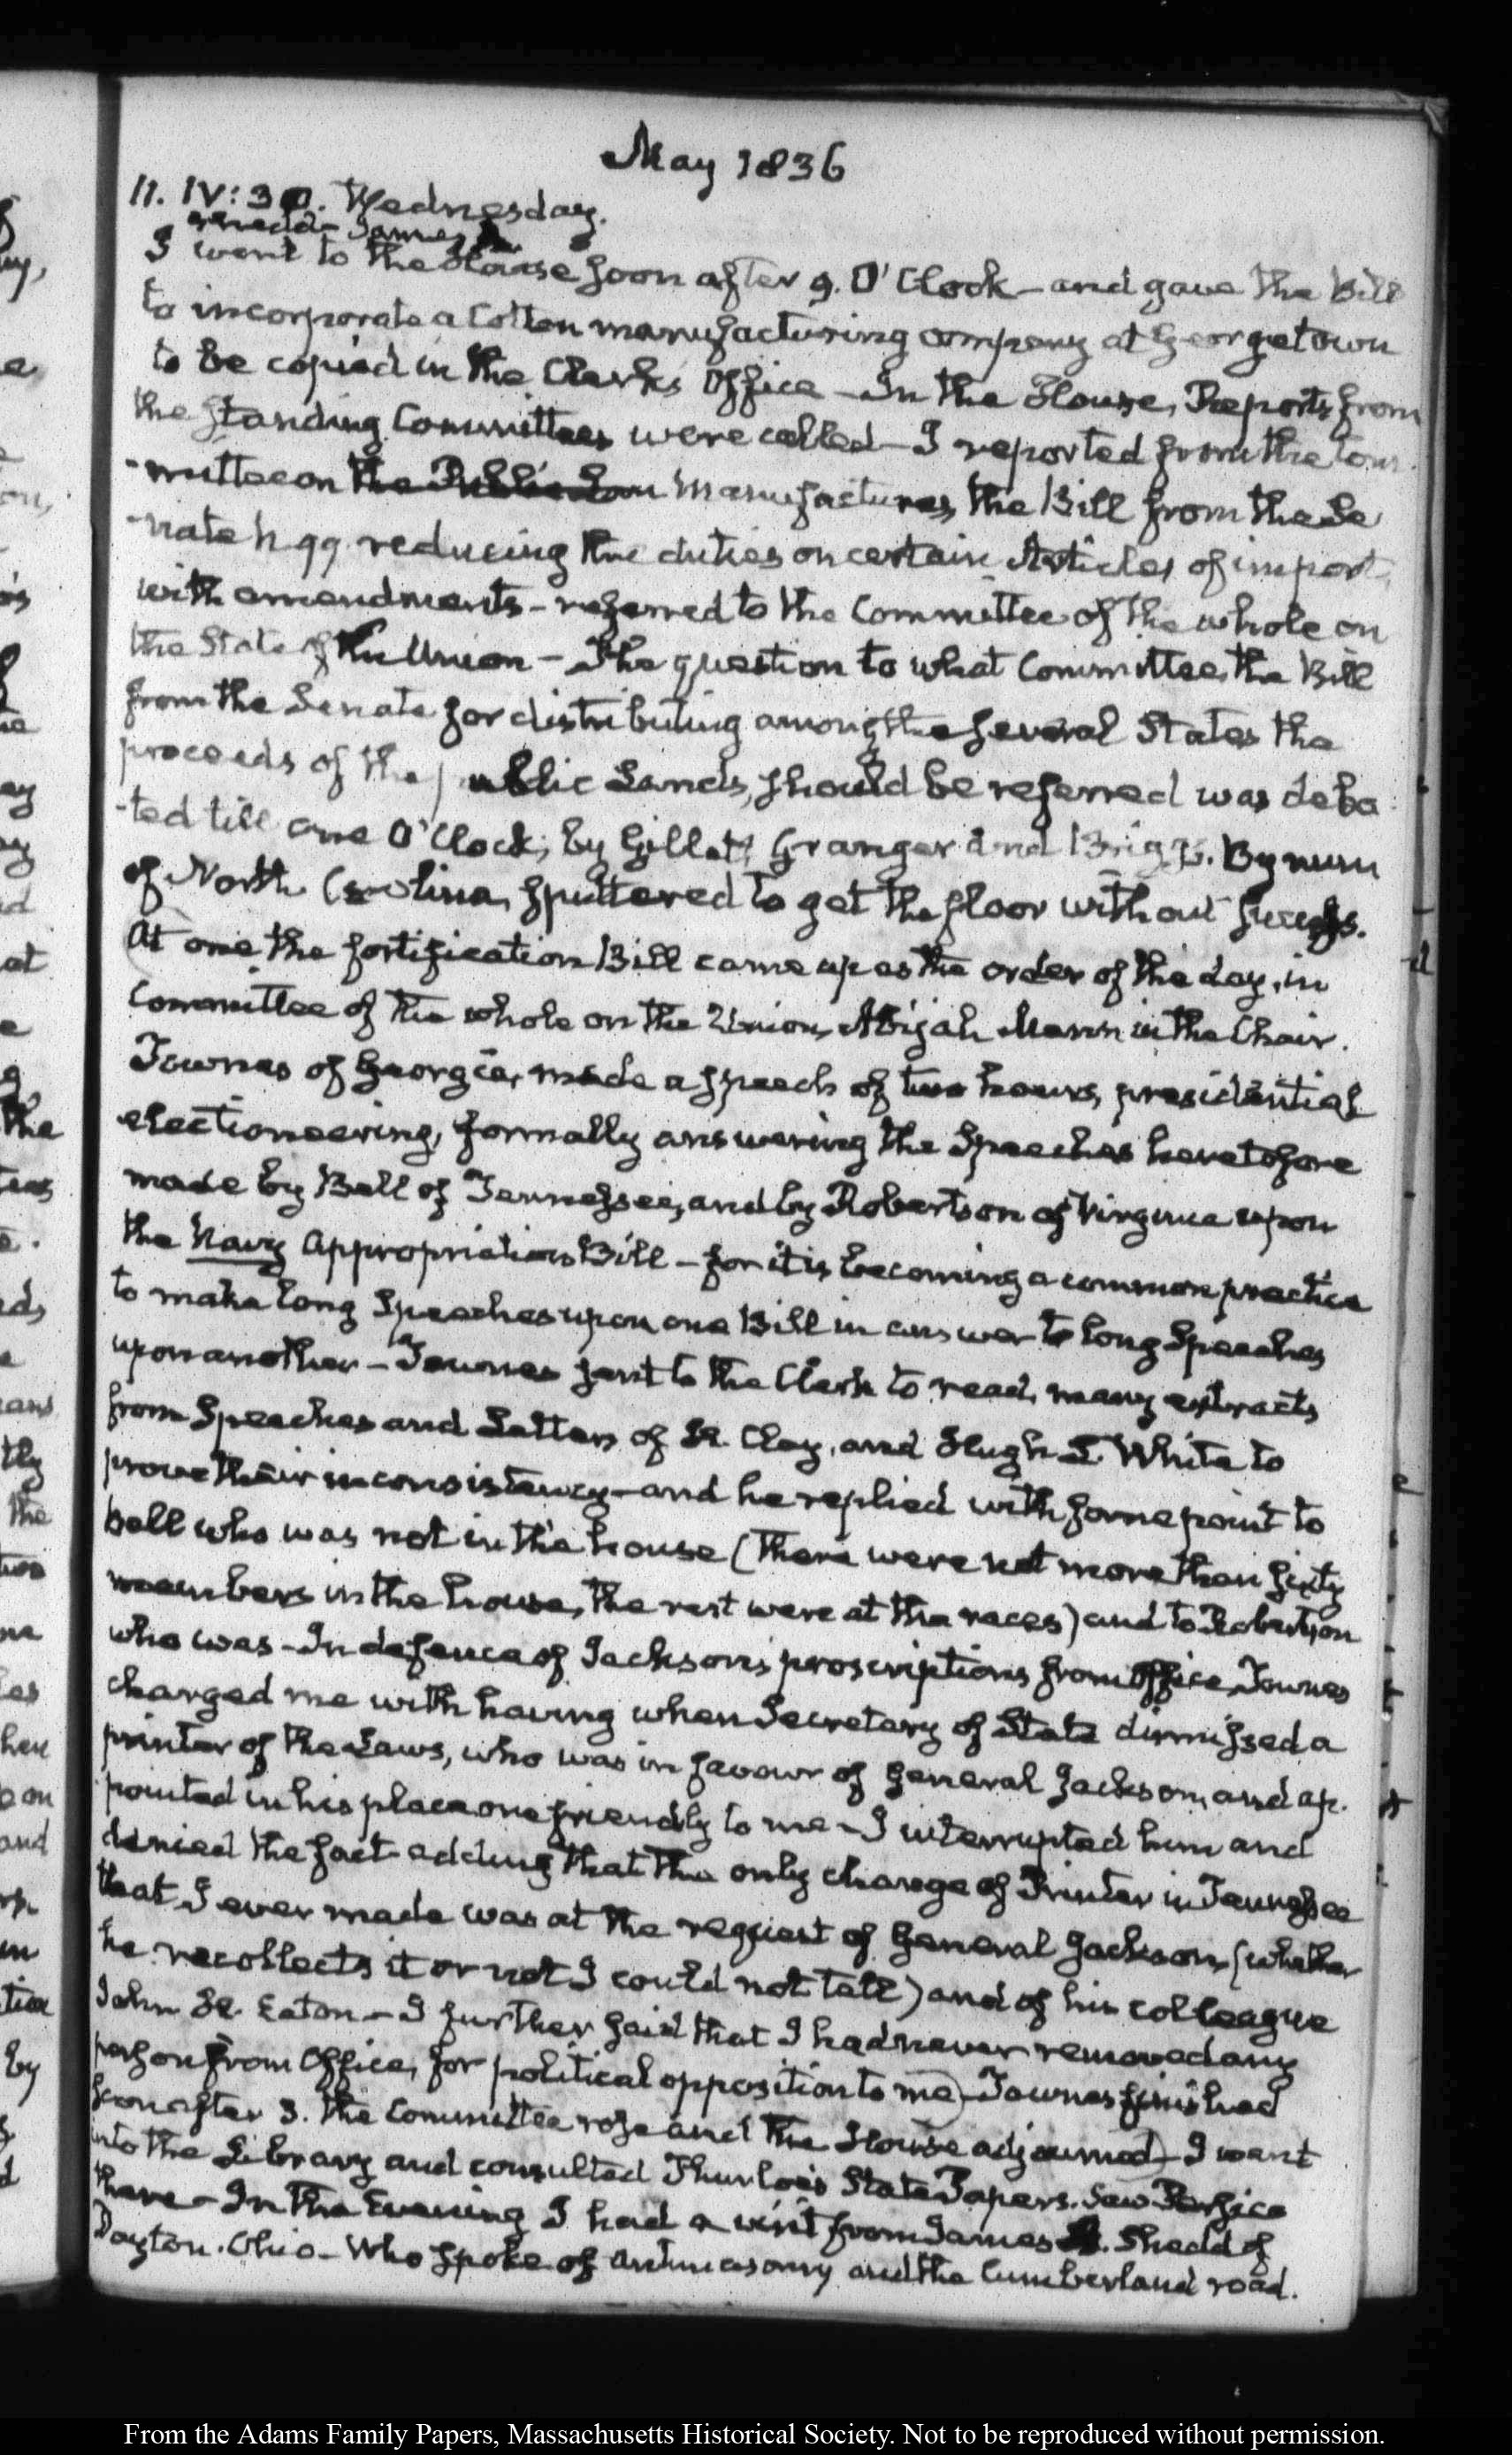 May 1836
11. IV:30. Wednesday.
Shedd—James
I went to the House soon after 9. O'Clock—and gave the Bill
to incorporate a Cotton manufacturing company at Georgetown
to be copied in the Clerk's Office—In the House, Reports from
the Standing Committees were called—I reported from the Com-
-mittee on the Public Lan Manufactures, the Bill from the Se
-nate N 99. reducing the duties on certain Articles of import,
with amendments—referred to the Committee of the whole on
the State of the Union—The question to what Committee, the Bill
from the Senate for distributing among the several States the
proceeds of the public Lands, should be referred was deba-
-ted till one O'Clock; by Gillet, Granger and Briggs. Bynum
of North Carolina, sputtered to get the floor without success.
At one the fortification Bill came up as the order of the day, in
Committee of the whole on the Union, Abijah Mann in the Chair.
Townes of Georgia, made a speech of two hours, presidential
electioneering, formally answering the Speeches heretofore
made by Bell of Tennessee, and by Robertson of Virginia upon
the Navy Appropriations Bill—for it is becoming a common practice
to make long Speeches upon one Bill in answer to long Speeches
upon another—Townes sent to the Clerk to read, many extracts
from Speeches and Letters of H. Clay, and Hugh L. White to
prove their inconsistency—and he replied with some point to
Bell who was not in the house (there were not more than sixty
members in the house, the rest were at the races) and to Robertson
who was—In defence of Jackson's proscriptions from Office, Townes
charged me with having when Secretary of State dismissed a
printer of the Laws, who was in favour of General Jackson, and ap-
pointed in his place one friendly to me—I interrupted him and
denied the fact—adding that the only change of Printer in Tennessee
that I ever made was at the request of General Jackson, (whether
he recollects it or not I could not tell) and of his colleague
John H. Eaton—I further said that I had never removed any
person from Office, for political opposition to me—Townes finished
soon after 3. the Committee rose and the House adjourned—I went
into the Library and consulted Thurloe's State Papers. Saw Persico
there—In the Evening I had a visit from James Shedd of
Dayton. Ohio—Who spoke of antimasonry and the Cumberland road.
From the Adams Family Papers, Massachusetts Historical Society. Not to be reproduced without permission.